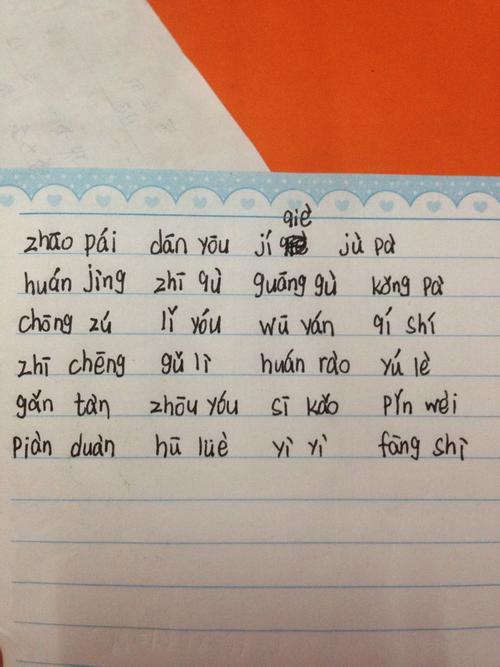 zhāo pái dān yōu jí qiè jù pà
huán jìng zhī qù guāng gù kǒng pà
chōng zú lǐ yóu wū yán qí shí
zhī chēng gǔ lì huán rào yú lè
gǎn tàn zhōu yóu sī kǎo pǐn wèi
piàn duàn hū lüè yì yì fāng shì